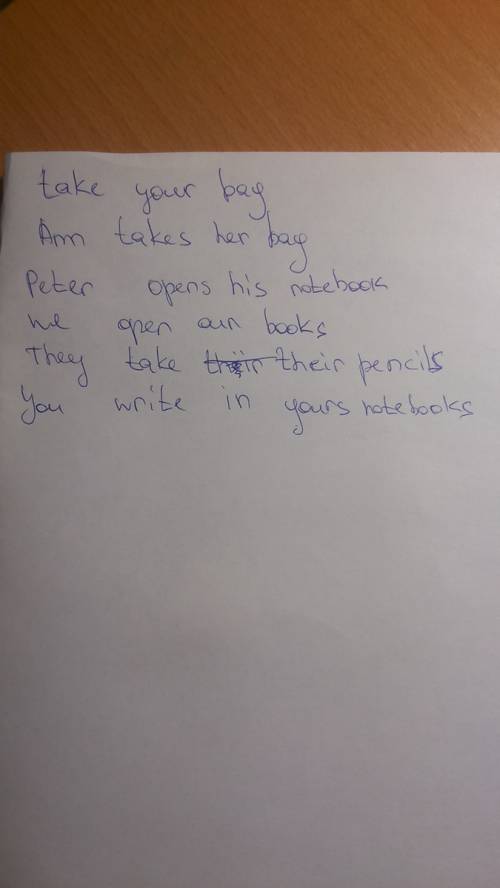 take your bag
Ann takes her bag
Peter opens his notebook
We open our books
They take their their pencils
You write in yours notebooks